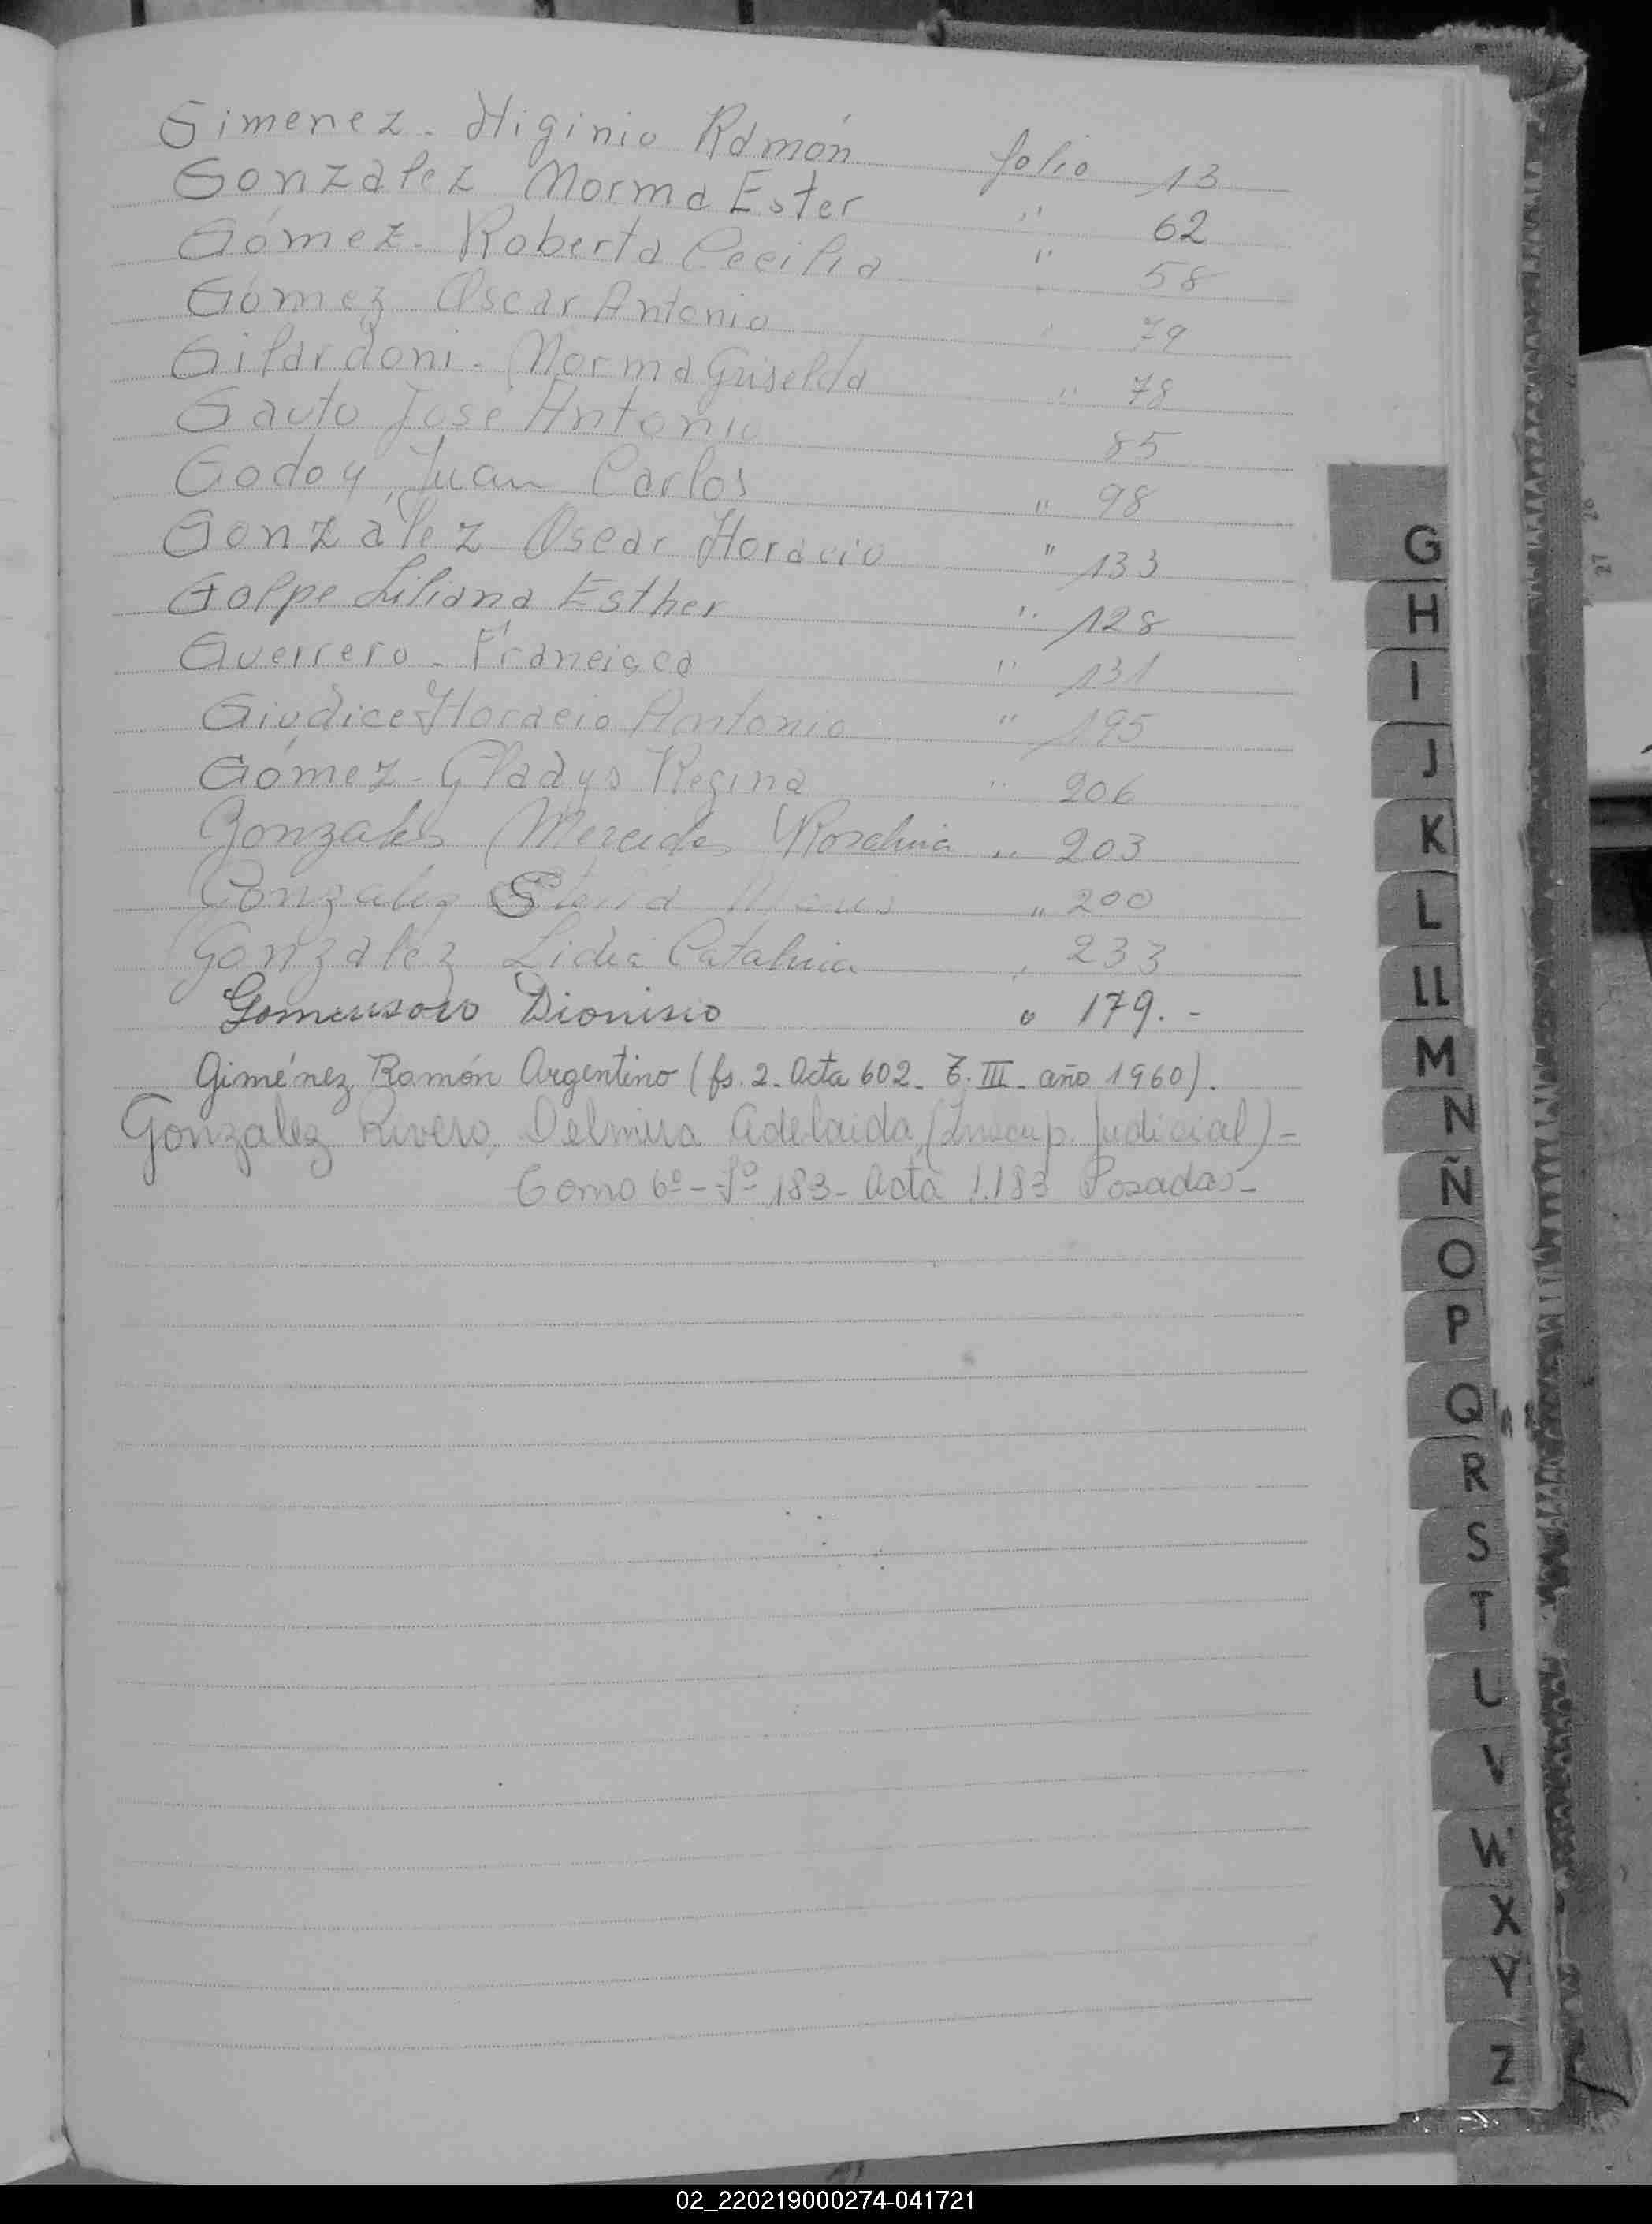 Gimenez - Higinio Ramón folio 13
Gonzalez Norma Ester " 62
Gómez - Roberta Cecilia " 58
Gómez Oscar Antonio " 79
Gilardoni - Norma Griselda " 78
Gauto José Antonio 85
Godoy, Juan Carlos " 98
González Oscar Horacio " 133
Golpe Liliana Esther " 128
Guerrero - Francisca " 131
Giudice Horacio Antonio " 195
Gómez - Gladys Regina " 206
Gonzales Mercedes Rosalina " 203
Gonzalez " 200
Gonzalez Lidia Catalina " 233
Gomensoro Dionisio " 179. -
Giménez, Ramón Argentino (fs. 2. Acta 602. T. III - año 1960).
Gonzalez Rivero, Delmira Adelaida, (Inscrip. Judicial) -
Tomo 6º - Fº 183 - Acta 1.183 Posadas -
G
H
I
J
K
L
LL
M
N
Ñ
O
P
Q
R
S
T
U
V
W
X
Y
Z
27 26
02_220219000274-041721